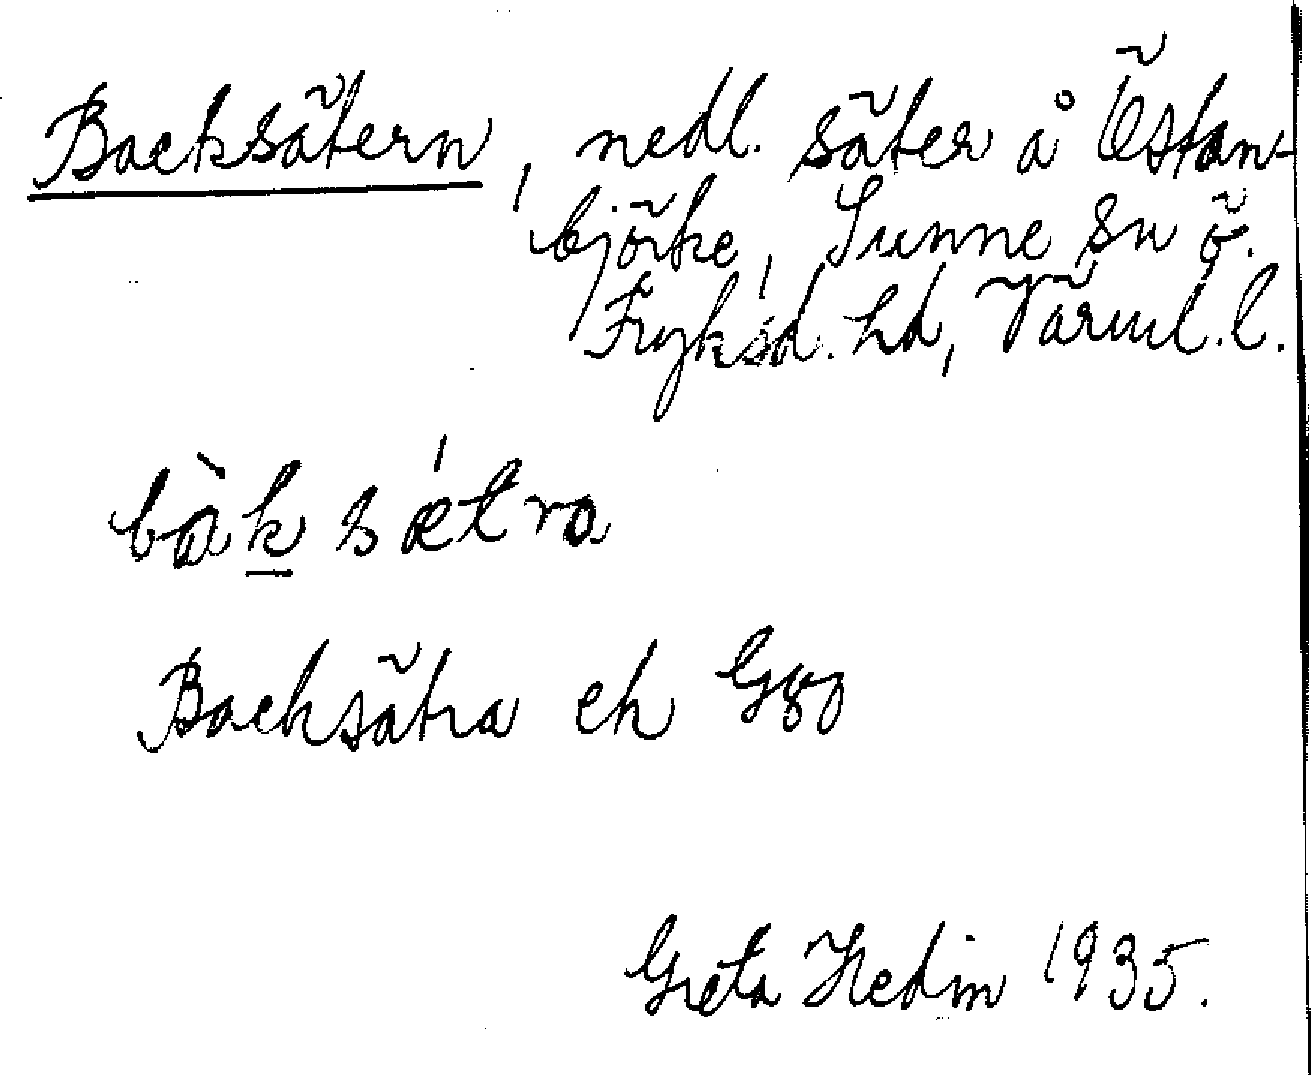 Backsätern, nedl. säter å Östan-
björke, Sunne sn Ö.
Fryksd. hd, Värml. l.
bàksǽtra
Backsätra ek
Greta Hedin 1935.